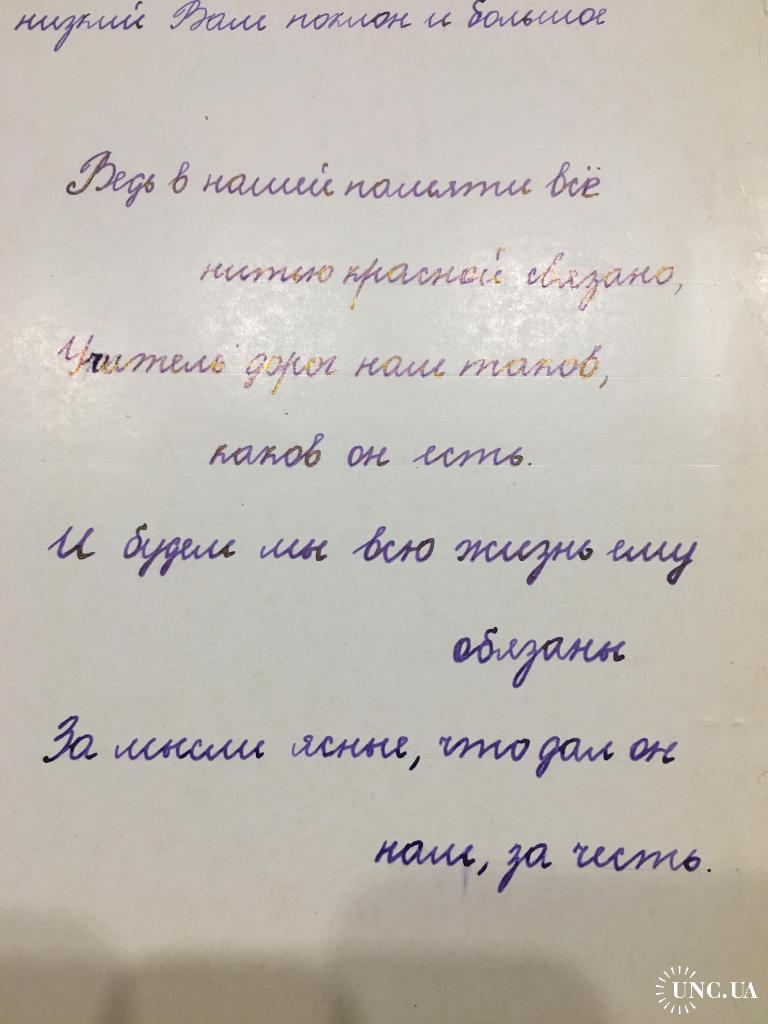 низкий Вам поклон и большое
Ведь в нашей памяти всё
нитью красной связано,
Учитель дорог нам таков,
каков он есть.
И будем мы всю жизнь ему
обязаны
За мысли ясные, что дал он
нам, за честь.
UNC.UA